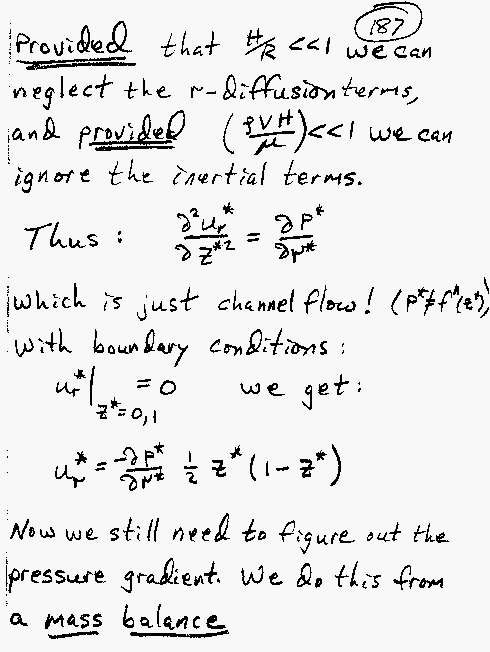 187
Provided that H/R <<1 we can
neglect the r-diffusion terms,
and provided (ρVH/μ)<<1 we can
ignore the inertial terms.
Thus : ∂²u_r*/∂z*² = ∂P*/∂r*
which is just channel flow! (P*≠fⁿ(z*))
With boundary conditions:
u_r*|_{z*=0,1} = 0 we get:
u_r* = -∂P*/∂r* 1/2 z* (1-z*)
Now we still need to figure out the
pressure gradient. We do this from
a mass balance